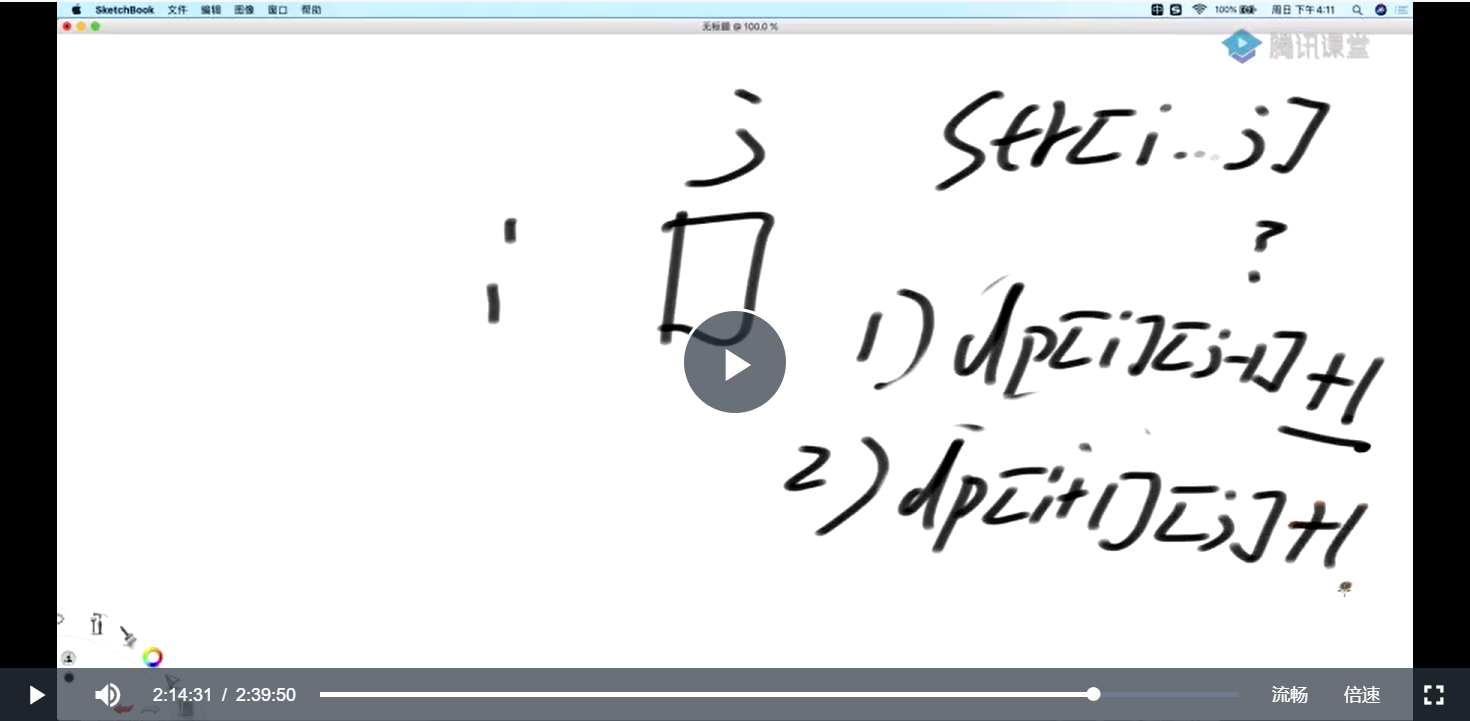 SketchBook 文件 编辑 图像 窗口 帮助 100% 周日 下午4:11
无标题 @ 100.0 %
腾讯课堂
j str[i...j]
i ?
1) dp[i][j-1]+1
2) dp[i+1][j]+1
2:14:31 / 2:39:50 流畅 倍速